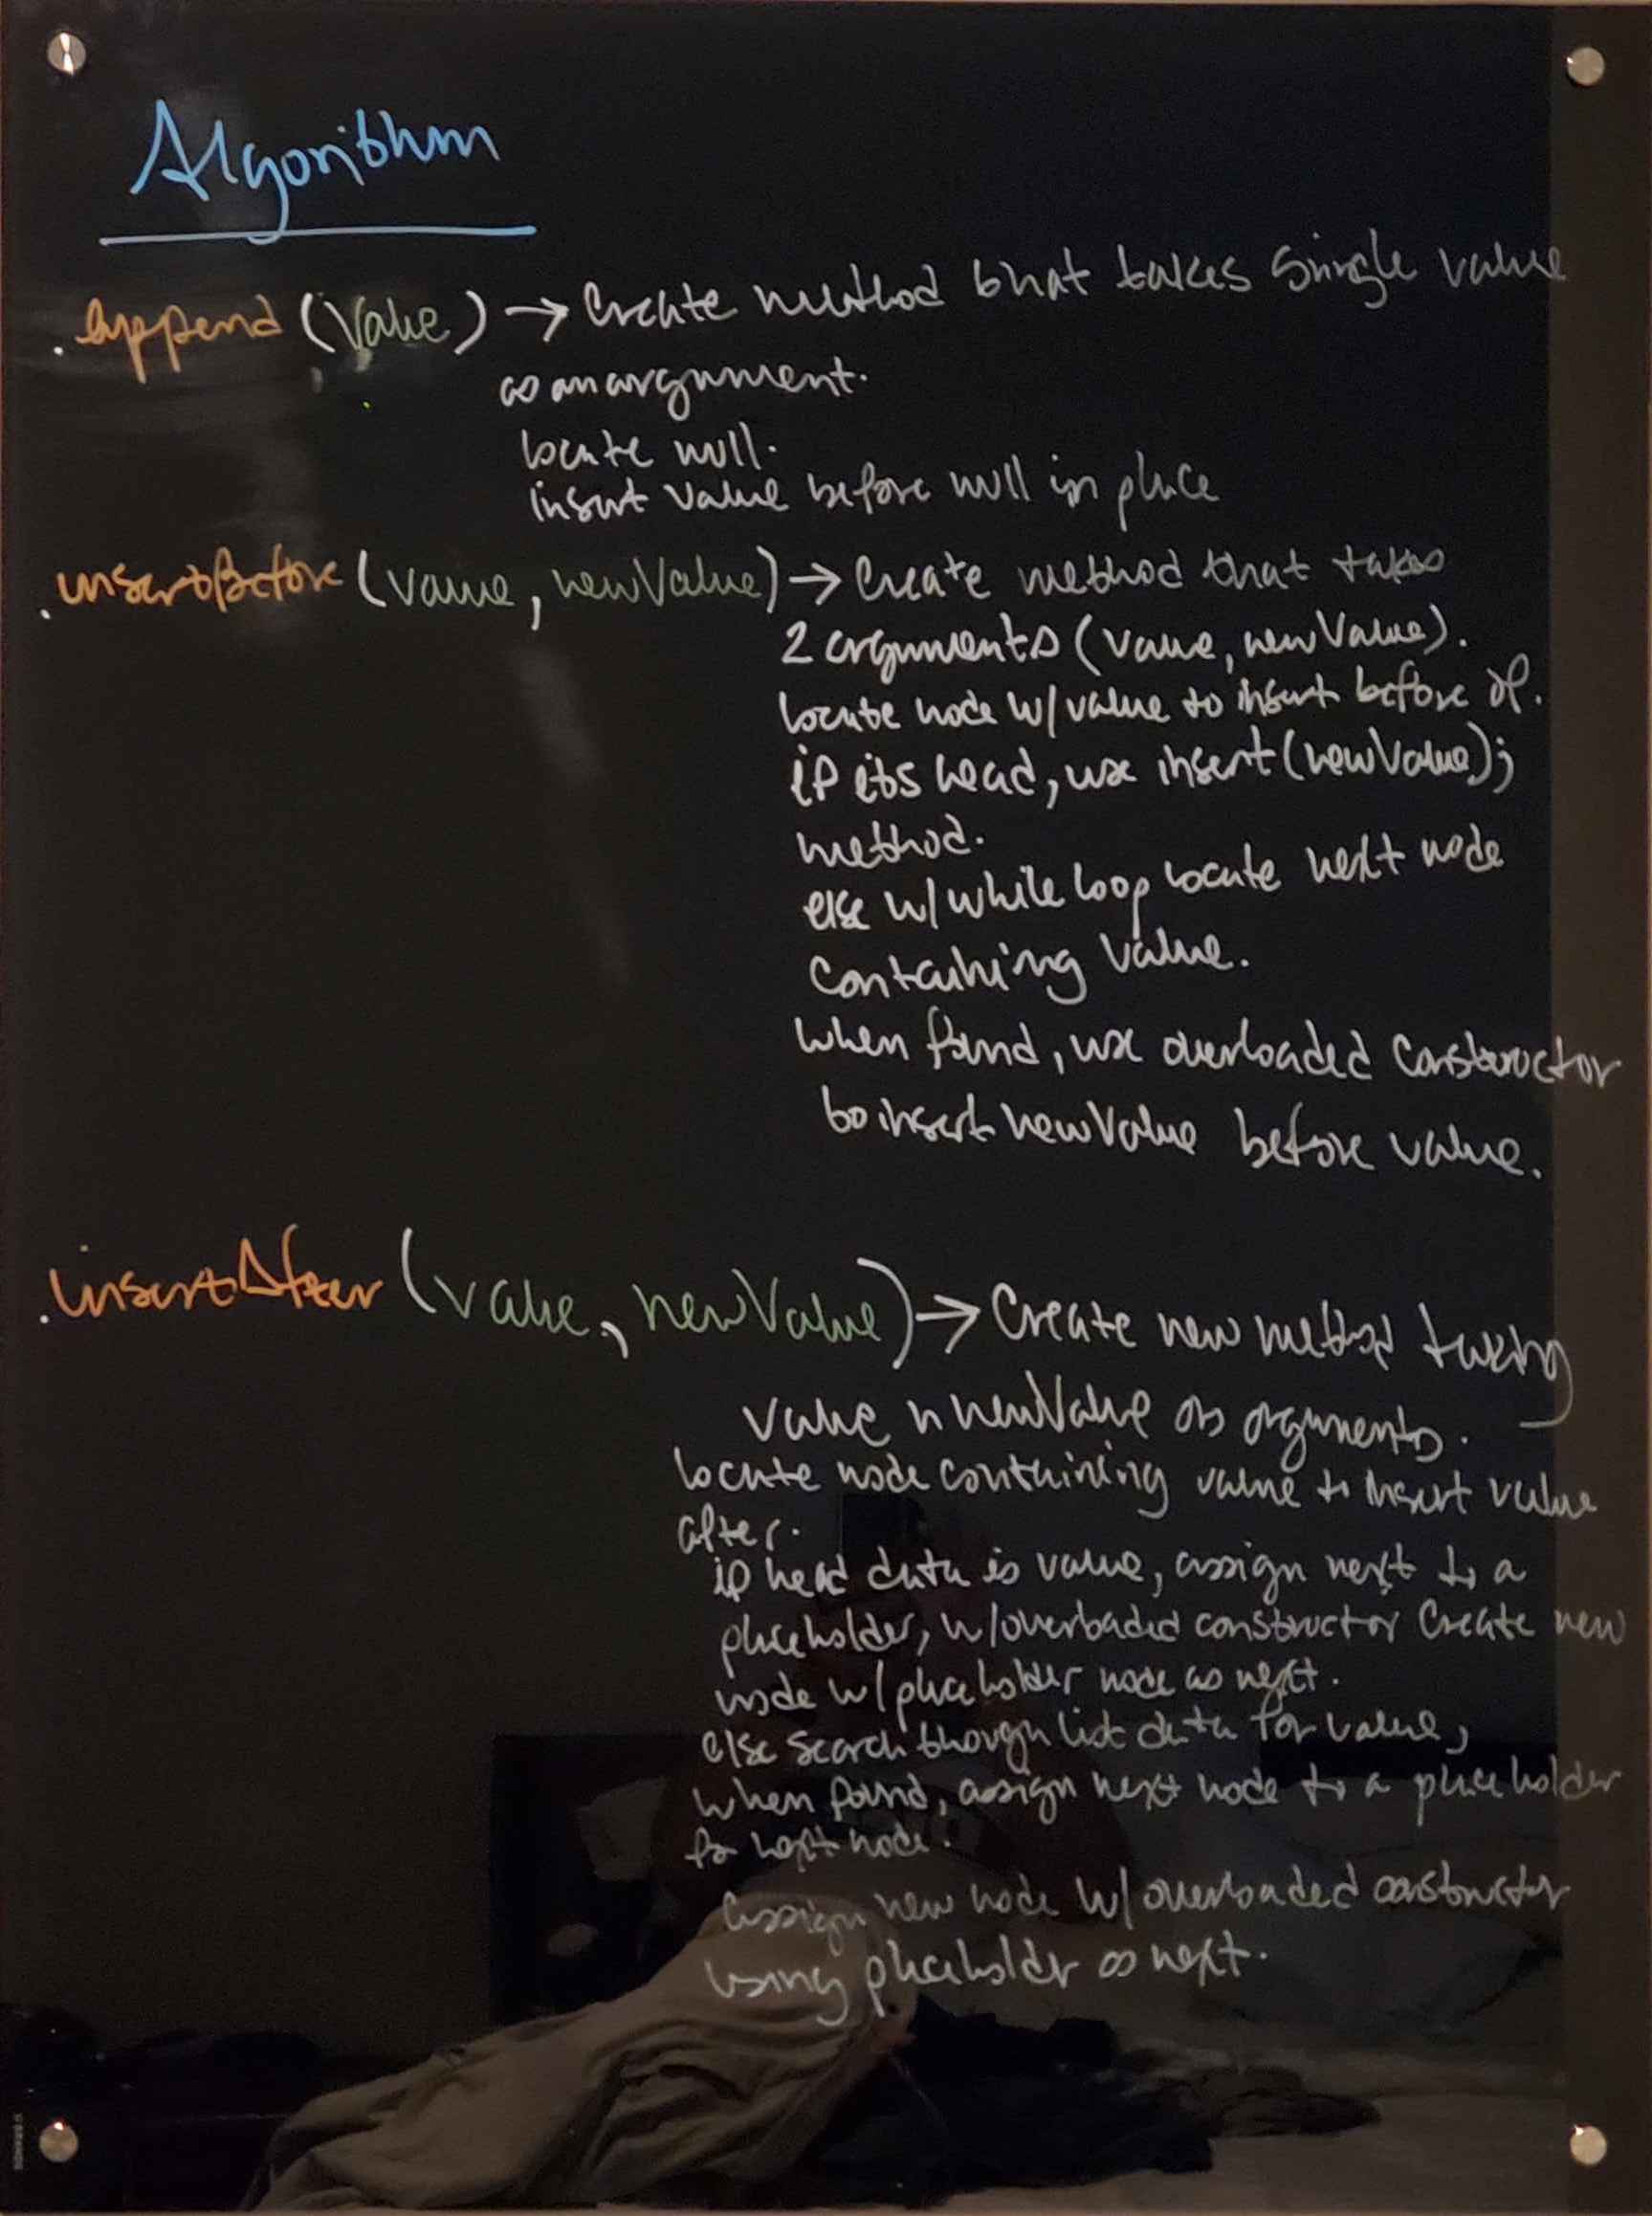 Algorithm
.append (Value) → Create method that takes single value
as an argument.
locate null.
insert value before null in place
.insertBefore (value, newValue) → Create method that takes
2 arguments (value, newValue).
locate node w/ value to insert before of.
if its head, use insert(newValue);
method.
else w/ while loop locate next node
containing value.
when found, use overloaded constructor
to insert newValue before value.
.insertAfter (value, newValue) → Create new method taking
value n newValue as arguments.
locate node containing value to insert value
after.
if head data is value, assign next to a
placeholder, w/ overloaded constructor create new
node w/ placeholder node as next.
else search though list data for value,
when found, assign next node to a placeholder
for next node.
assign new node w/ overloaded constructor
using placeholder as next.